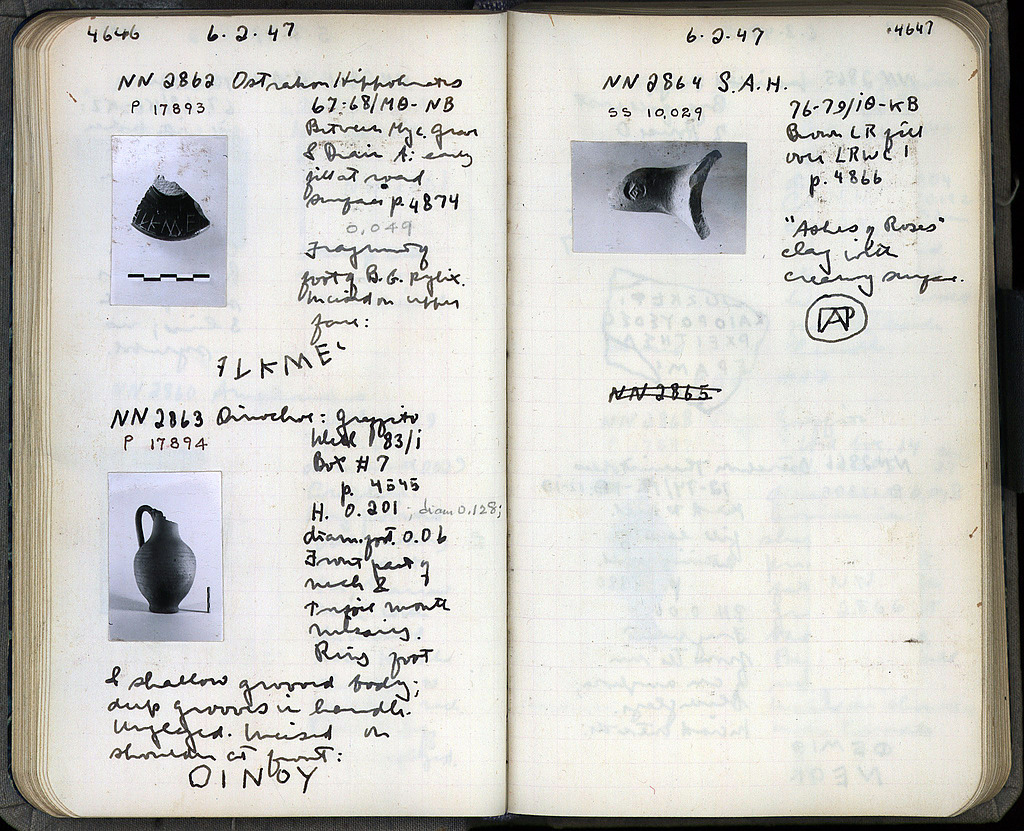 4646 6·2·47
NN 2862 Ostrakon Hippokrates
P 17893
67:68/ΜΘ-ΝΒ
Between Myc. Grave
& Drain A: early
fill at road
surface p. 4874
0,049
Fragment of
foot of B.G. kylix.
Incised on upper
face:
ΙLKME
NN 2863 Oinochoe: graffito
P 17894
Well 83/i
Box #7
p. 4545
H. 0.201; diam 0.128;
diam. foot 0.06
Front part of
neck &
trefoil mouth
missing.
Ring foot
& shallow grooved body;
deep grooves in handle.
Unglazed. Incised on
shoulder at front:
OINOY
6·2·47 4647
NN 2864 S.A.H.
SS 10,029
76-79/ΙΘ-ΚΒ
Brown LR fill
over LRWL 1
p. 4866
"Ashes of Roses"
clay with
creamy surface.
NN 2865